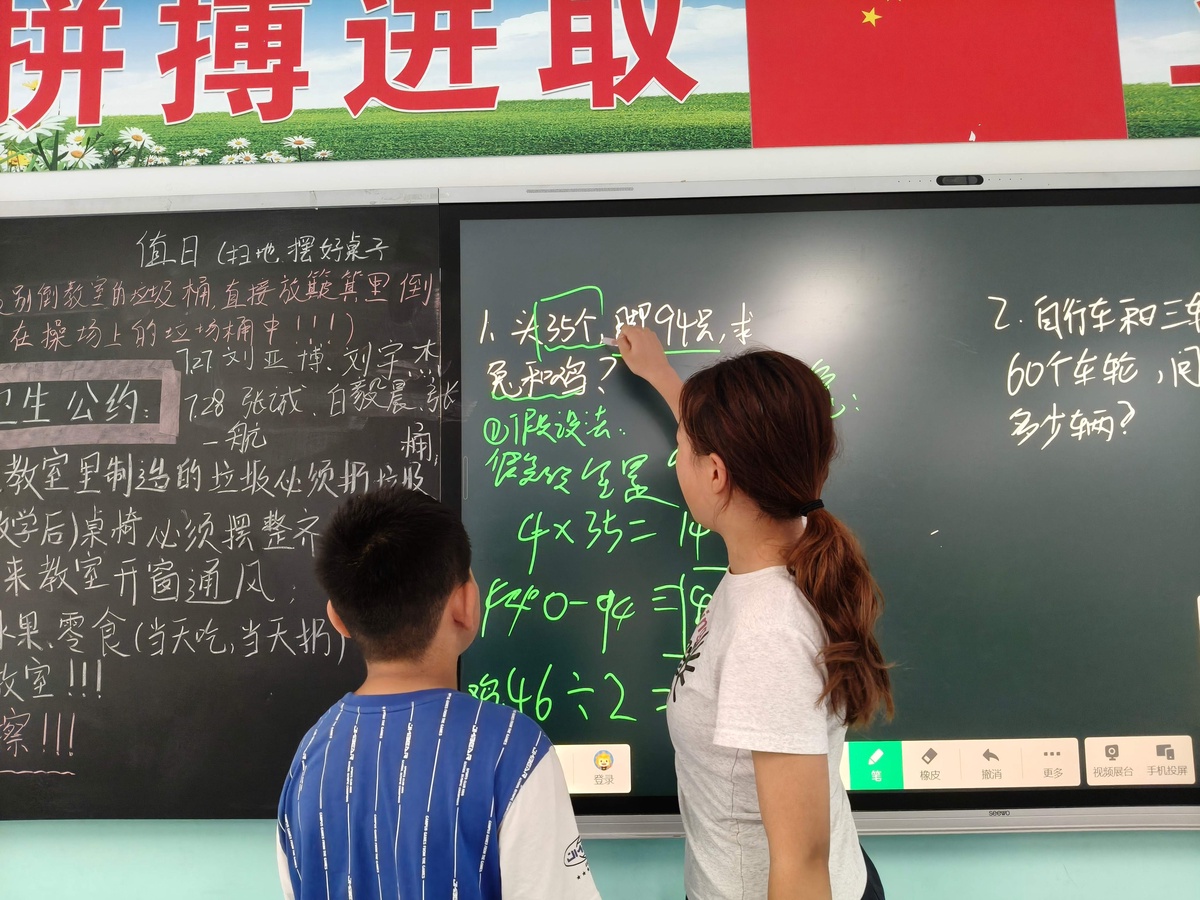 拼搏进取
值日(扫地.摆好桌子
别倒教室的垃圾桶,直接放簸箕里倒
在操场上的垃圾桶中!!!)
7.27 刘亚博、刘宇杰
卫生公约:
7.28 张诚、白毅晨、张
一航
桶;
教室里制造的垃圾必须扔垃圾
学后)桌椅必须摆整齐
来教室开窗通风;
水果、零食(当天吃,当天扔)
教室!!!
察!!!
1. 头35个,脚94只,求
兔和鸡?
①假设法:
假设全是
4×35=14
140-94=
鸡46÷2=
2. 自行车和三
60个车轮,问
多少辆?
登录
笔
橡皮
撤消
更多
视频展台
手机投屏
seewo